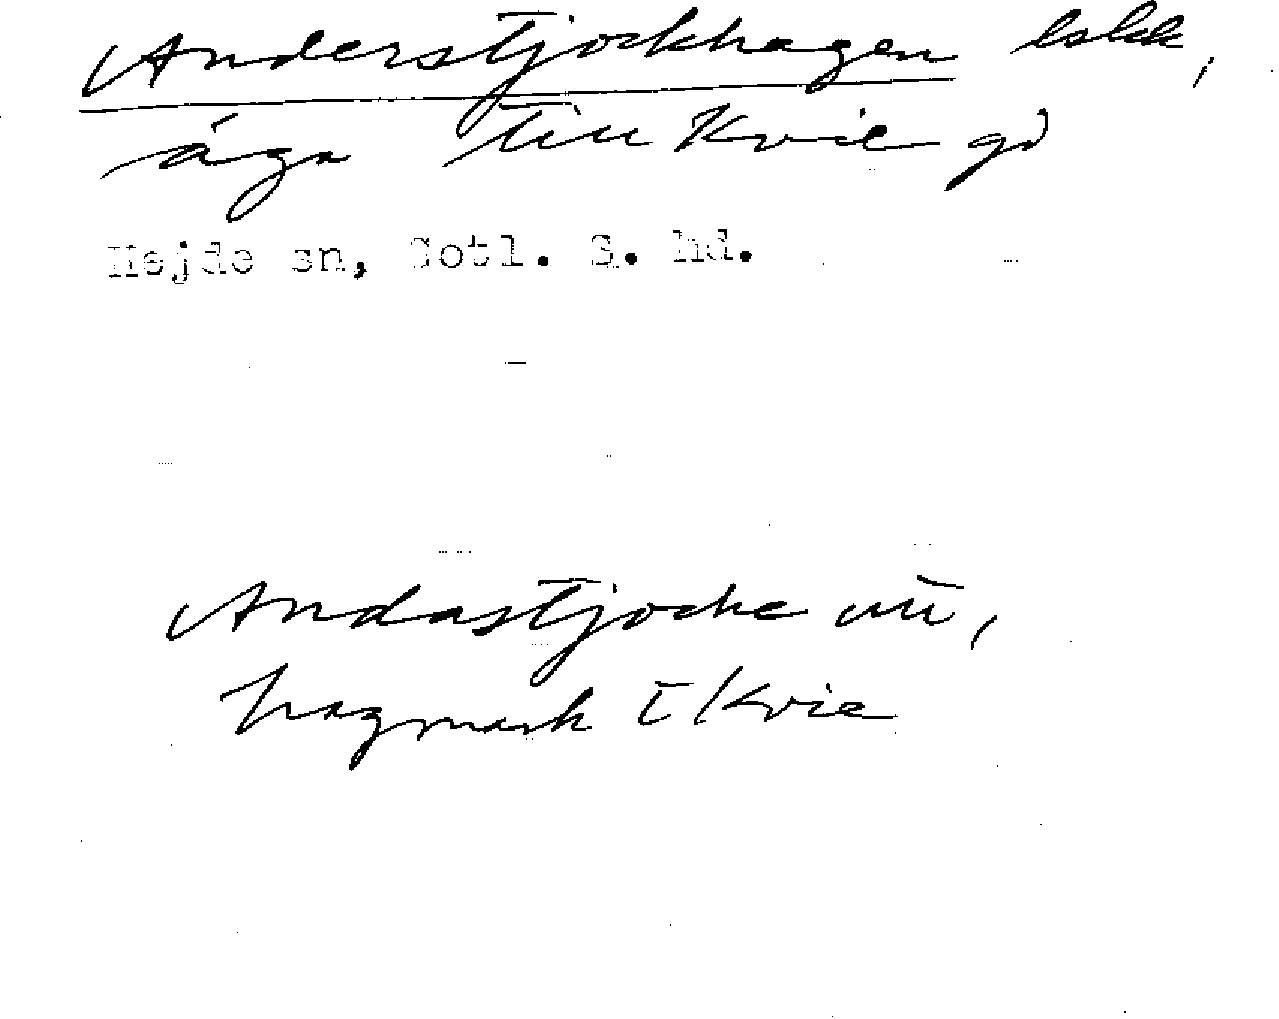 Anderstjockhagen
äga till Kvie gd
Hejde sn, Gotl. S. hd.
Andastjocke
hagmark t Kvie